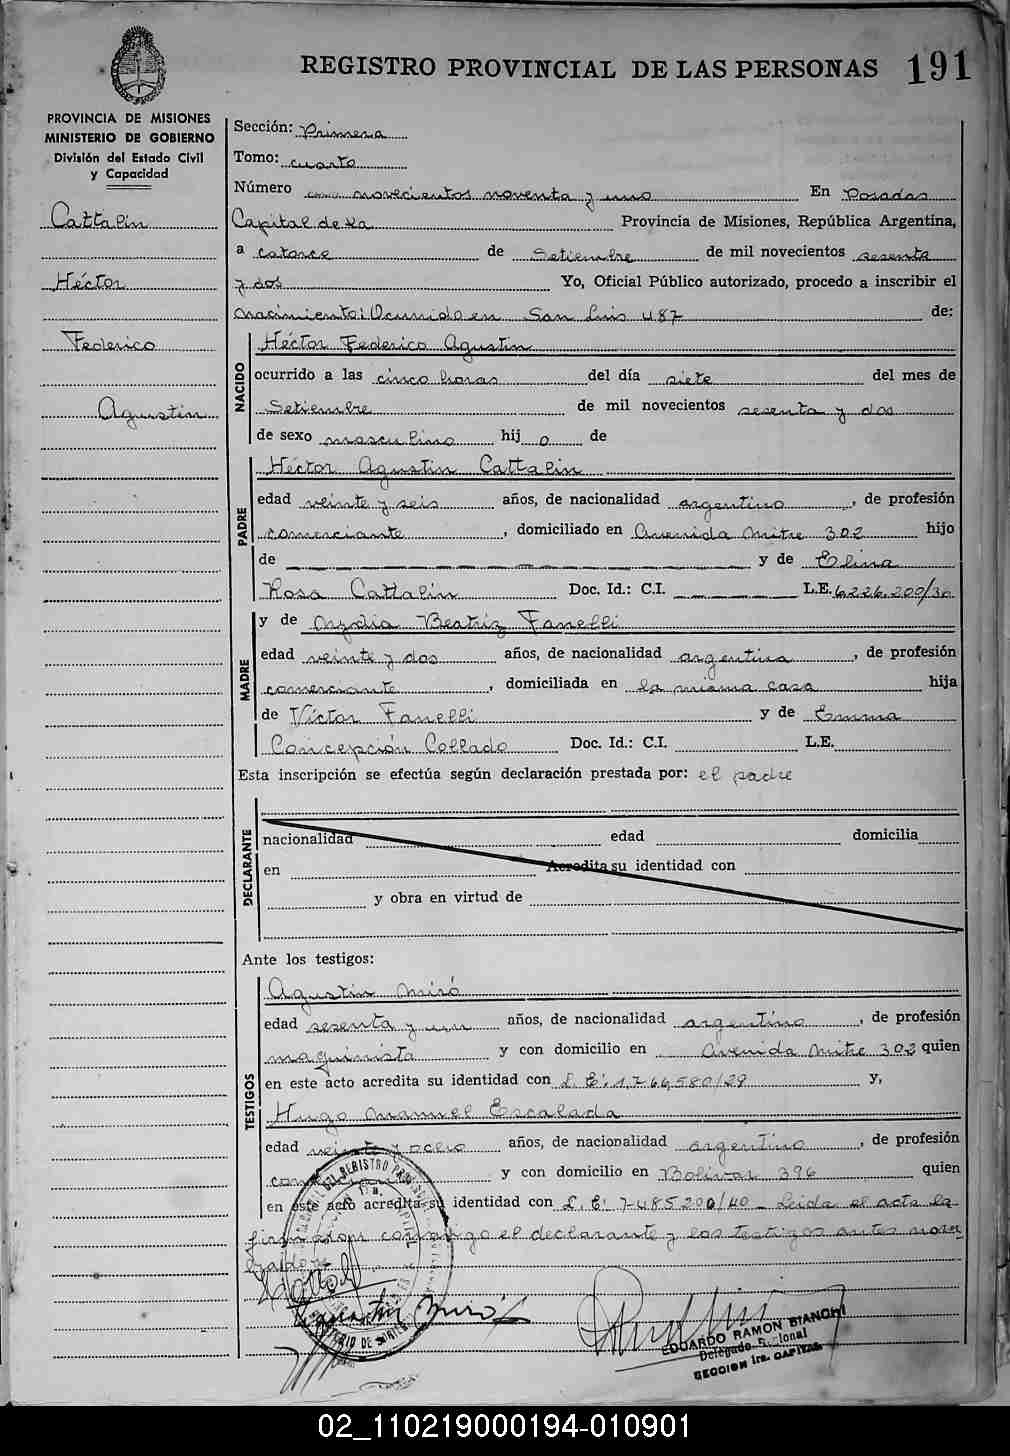 REGISTRO PROVINCIAL DE LAS PERSONAS 191
PROVINCIA DE MISIONES
MINISTERIO DE GOBIERNO
División del Estado Civil
y Capacidad
Cattalin
Héctor
Federico
Agustin
Sección: Primera
Tomo: cuarto
Número novecientos noventa y uno En Posadas
Capital de la Provincia de Misiones, República Argentina,
a catorce de Setiembre de mil novecientos sesenta
y dos Yo, Oficial Público autorizado, procedo a inscribir el
nacimiento: Ocurrido en San Luis 487 de:
NACIDO
Héctor Federico Agustin
ocurrido a las cinco horas del día siete del mes de
Setiembre de mil novecientos sesenta y dos
de sexo masculino hij o de
PADRE
Héctor Agustin Cattalin
edad veinte y seis años, de nacionalidad argentino, de profesión
comerciante, domiciliado en Avenida Mitre 302 hijo
de y de Elina
Rosa Cattalin Doc. Id.: C.I. L.E. 6226.200/36
MADRE
y de Beatriz Fanelli
edad veinte y dos años, de nacionalidad argentina, de profesión
comerciante, domiciliada en la misma casa hija
de Víctor Fanelli y de Emma
Concepción Collado Doc. Id.: C.I. L.E.
Esta inscripción se efectúa según declaración prestada por: el padre
DECLARANTE
nacionalidad edad domicilia
en Acredita su identidad con
y obra en virtud de
Ante los testigos:
TESTIGOS
Agustin Miró
edad sesenta y un años, de nacionalidad argentino, de profesión
maquinista y con domicilio en Avenida Mitre 302 quien
en este acto acredita su identidad con L.E. 1,766,580/29 y,
Hugo Manuel Escalada
edad veinte y ocho años, de nacionalidad argentino, de profesión
y con domicilio en Bolivar 396 quien
en este acto acredita su identidad con L.E. 7485200/40 - Leida el acta la
conmigo el declarante y los testigos antes
Agustin Miró
EDUARDO RAMON BIANCHI
Delegado
SECCION 1ra. CAPITAL
02_110219000194-010901